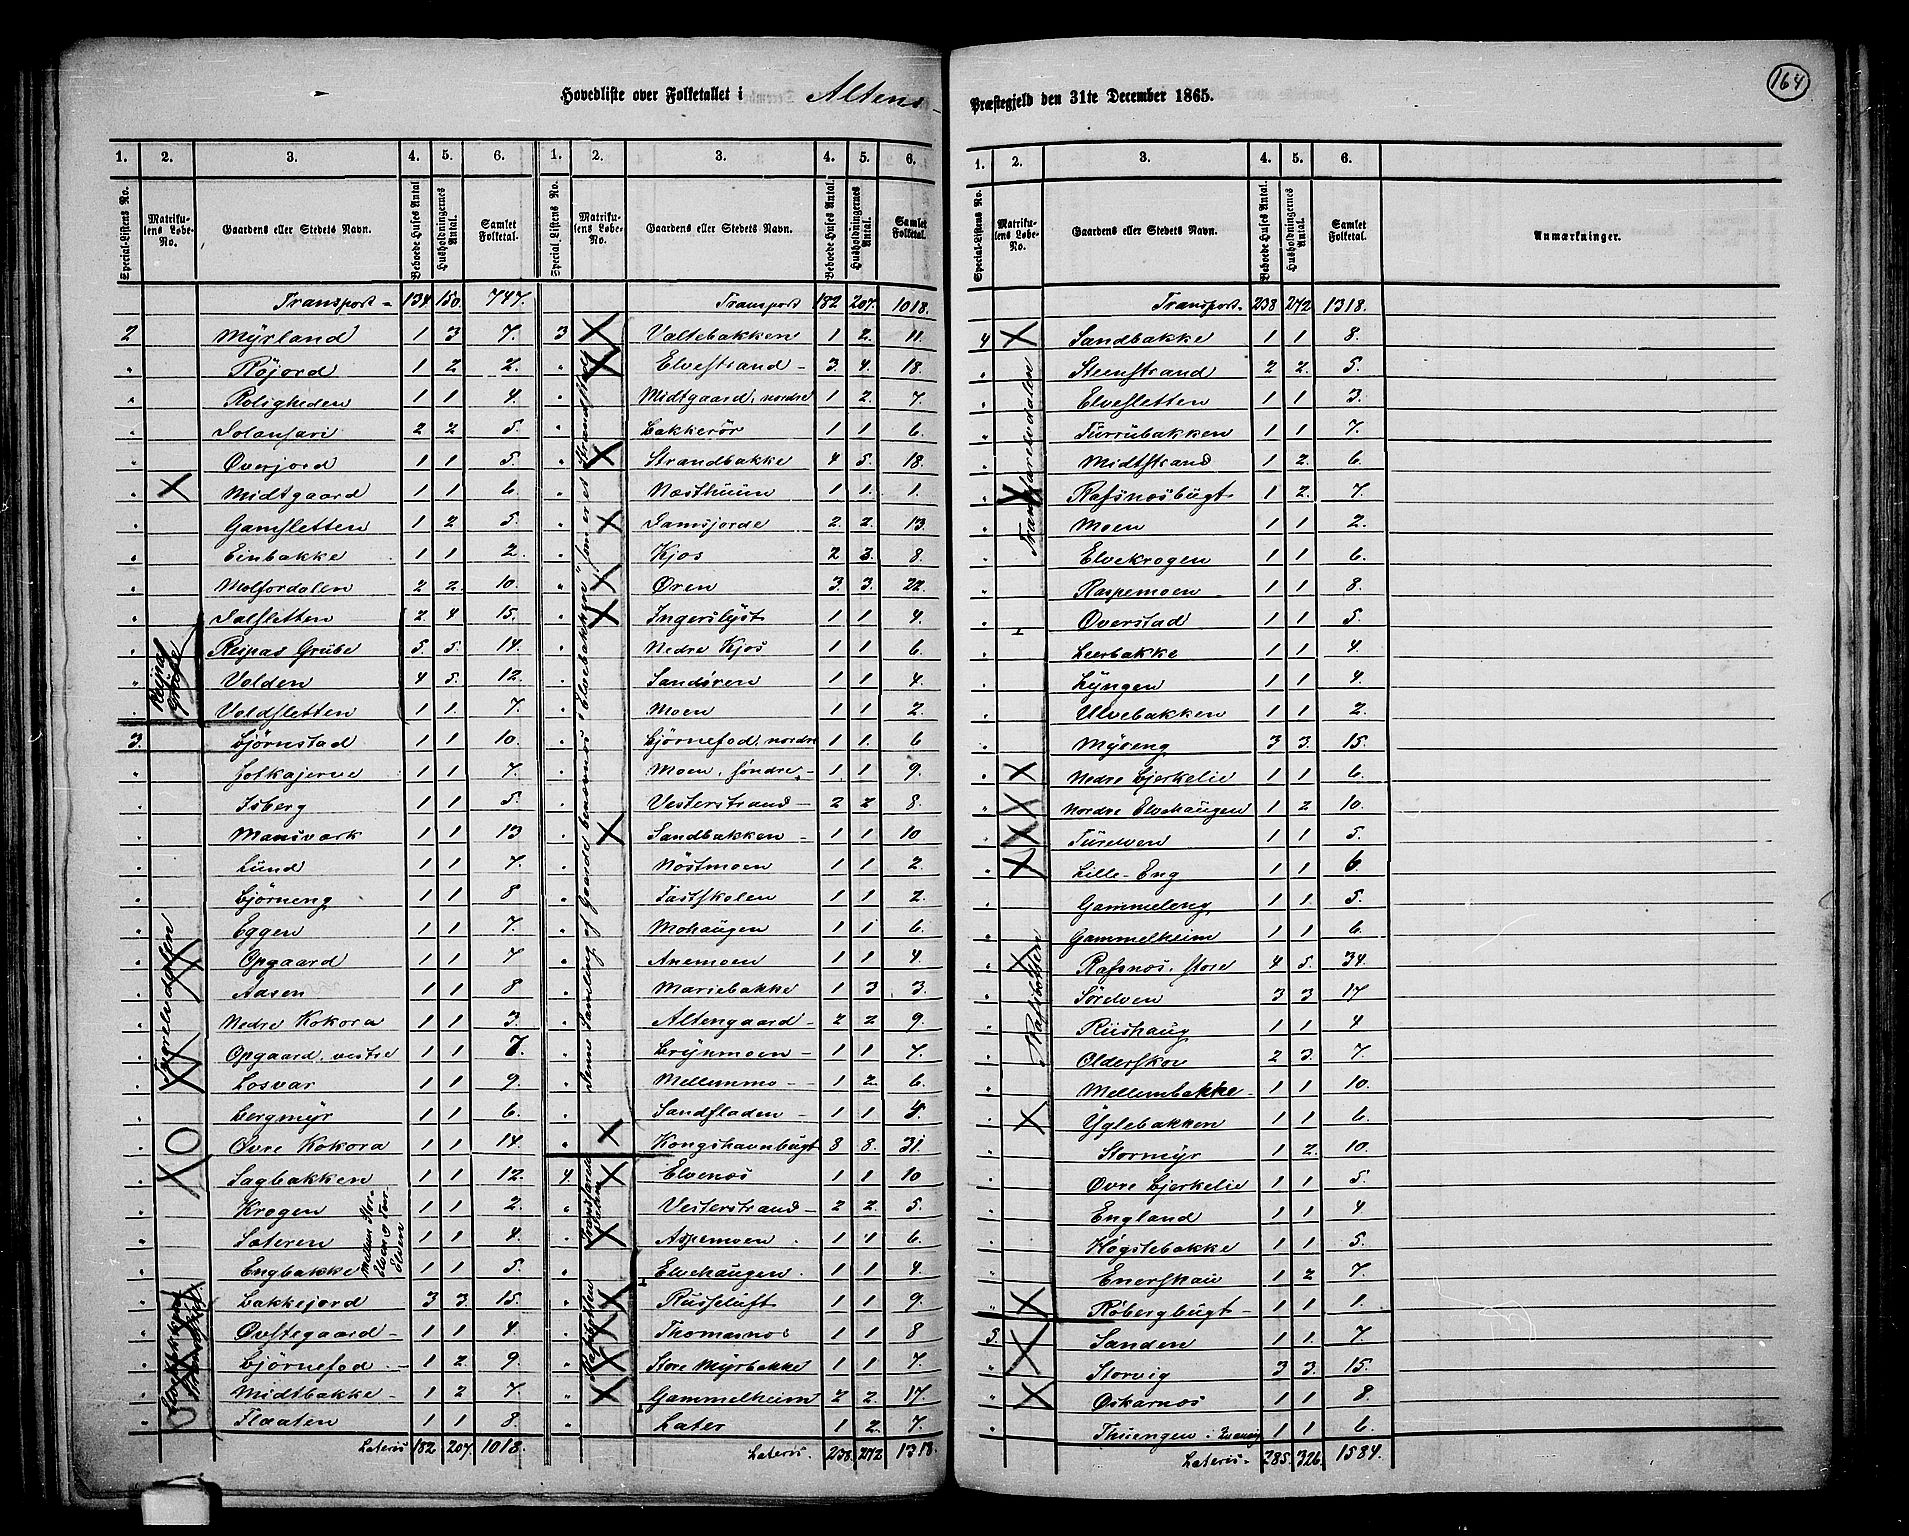 164
Hovedliste over Folketallet i Altens
Præstegjeld den 31te December 1865.
1. 2. 3. 4. 5. 6.
Special-Listens No. Matrikulens Løbe-No. Gaardens eller Stedets Navn. Beboede Huses Antal. Husholdningernes Antal. Samlet Folketal.
Transport 134 150 747.
2 Myrland 1 3 7.
" Röjord 1 2 2.
" Roligheden 1 1 4.
" 2 2 5.
" Överjord 1 1 5.
" Midtgaard 1 1 6
" Gamsletten 1 2 5.
" Einbakke 1 1 2.
" Molfordalen 2 2 10.
" Salsletten 2 4 15.
" Reipas Grube 5 5 14.
" Volden 4 5. 12.
" Voldsletten 1 1. 7.
3. Björnstad 1 1 10.
" Jotkajerve 1 1 7.
" Isberg 1 1 5.
" Mansvark 1 1 13
" Lund 1 1 7.
" Björneng 1 1 8
" Eggen 1 1 7.
" Opgaard 1 1 7
" Aasen 1 1 8
" Nedre Kokora 1 1 3.
" Opgaard, vestre 1 1 7.
" Losvar 1 1 9.
" Bergmyr 1 1 6.
" Övre Kokora 1 1 14.
" Sagbakken 1 1 12.
" Krogen 1 1 2.
" Sæteren 1 1 4.
" Engbakke 1 1 5.
" Bakkejord 3 3. 15.
" Övstegaard 1 1 4.
" Björnefod 1 2 9.
" Midtbakke 1 2 7
" Flaaten 1 1 8.
Lateris 182. 207. 1018.
Reipas Grube
Tugrelvdalen
mellem Store Elven & Tver Elven
1. 2. 3. 4. 5. 6.
Special Listens No. Matrikulens Løbe-No. Gaardens eller Stedets Navn. Beboede Huses Antal. Husholdningernes Antal. Samlet Folketal.
Transport 182 207. 1018.
3 Valtebakken 1 2. 11.
" Elvestrand 3 4. 18.
" Midtgaard, nordre 1 2. 7.
" Bakkerör 1 1 6.
" Strandbakke 4 5. 18.
" Næsthuun 1 1. 1.
" Jamsjorde 2. 2. 13.
" Kjos 2 3. 8.
" Ören 3 3. 22.
" Ingerslyst 1 1 4.
" Nedre Kjos 1 1 6.
" Sandören 1 1 4.
" Moen 1 1 2.
" Björnefod, nordre 1 1. 6
" Moen, söndre 1 1 9.
" Vesterstrand 2 2 8.
" Sandbakken 1 1 10
" Nöstmoen 1 1 2.
" Fastskolen 1 1 2.
" Mohaugen 1 1 6.
" Anemoen 1 1 4.
" Mariebakke 1 3 3.
" Altengaard 2 2 9.
" Brynmoen 1 1 7.
" Mellemmo 1 2. 6.
" Sandfladen 1 1 5.
" Kongshavnbugt 8 8. 31.
4. Elvenes 1 1 10
" Vesterstrand 2 2. 5.
" Aspemoen 1 1 6.
" Elvehaugen 1 1 4.
" Russeluft 1 1 9.
" Thomasnes 1 1 8
" Store Myrbakke 1 1 7.
" Gammelheim 2 2. 17.
" Later 1 2. 7.
Lateris 238. 272 1318.
Denne Samling af Gaarde benævnes "Elvebakken" som er et Strandsted
Rafsbotten
1. 2. 3. 4. 5. 6.
Special-Listens No. Matrikulens Løbe-No. Gaardens eller Stedets Navn. Beboede Huses Antal. Husholdningernes Antal. Samlet Folketal. Anmærkninger.
Transport 238 272 1318.
4 Sandbakke 1 1 8.
" Steenstrand 2 2. 5.
" Elvesletten 1 1 3.
" Furrubakken 1 1 7.
" Midtstrand 1 2. 6.
" Rafsnesbugt 1 2. 7.
" Moen 1 1 2.
" Elvekrogen 1 1 6.
" Raspemoen 1 1 8.
" Överstad 1 1 5.
" Leerbakke 1 1 4.
" Lyngen 1 1 4.
" Ulvebakken 1 1 2.
" Myreng 3 3. 15.
" Nedre Bjerkelie 1 1 6.
" Nordre Elvehaugen 1 2 10.
" Furelven 1 1 5.
" Lille-Eng 1 1 6
" Gammeleng 1 1 5.
" Gammelheim 1 1 6
" Rafsnes, store 4 5. 34.
" Sörelven 3 3 17
" Riishaug 1 1 4
" Olderskov 2 3. 7.
" Mellembakke 1 1 10.
" Yglebakken 1 1 6.
" Stormyr 1 2. 10.
" Övre Bjerkelie 1 1 5.
" England 1 1 4
" Högstebakke 1 1 5.
" Enerskau 1 2 7.
" Röbergbugt 1 1 1.
5. Sanden 1 1. 7.
" Storvig 3 3. 15.
" Oskarnes 1 1 8.
" Thuengen 1 1 6.
Lateris 285. 326. 1584.
Rafsbotten